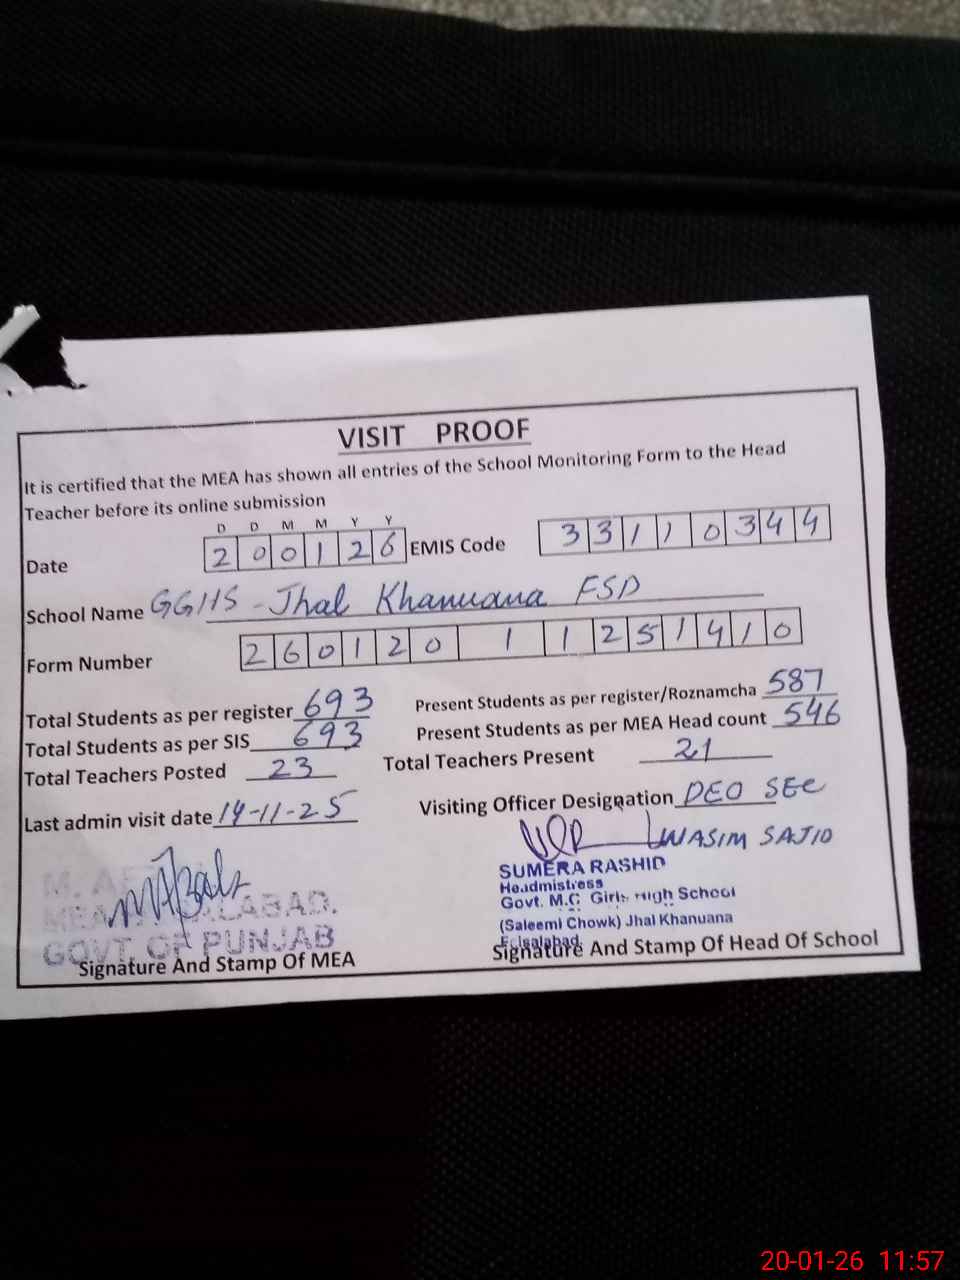 VISIT PROOF
It is certified that the MEA has shown all entries of the School Monitoring Form to the Head
Teacher before its online submission
D D M M Y Y
Date 200126 EMIS Code 33110344
School Name GGHS - Jhal Khanuana FSD
Form Number 260120 1 1251410
Total Students as per register 693 Present Students as per register/Roznamcha 587
Total Students as per SIS 693 Present Students as per MEA Head count 546
Total Teachers Posted 23 Total Teachers Present 21
Last admin visit date 14-11-25 Visiting Officer Designation DEO SEC
WASIM SAJID
SUMERA RASHID
Headmistress
Govt. M.C. Girls High School
(Saleemi Chowk) Jhal Khanuana
Faisalabad.
GOVT OF PUNJAB
Signature And Stamp Of MEA Signature And Stamp Of Head Of School
20-01-26 11:57